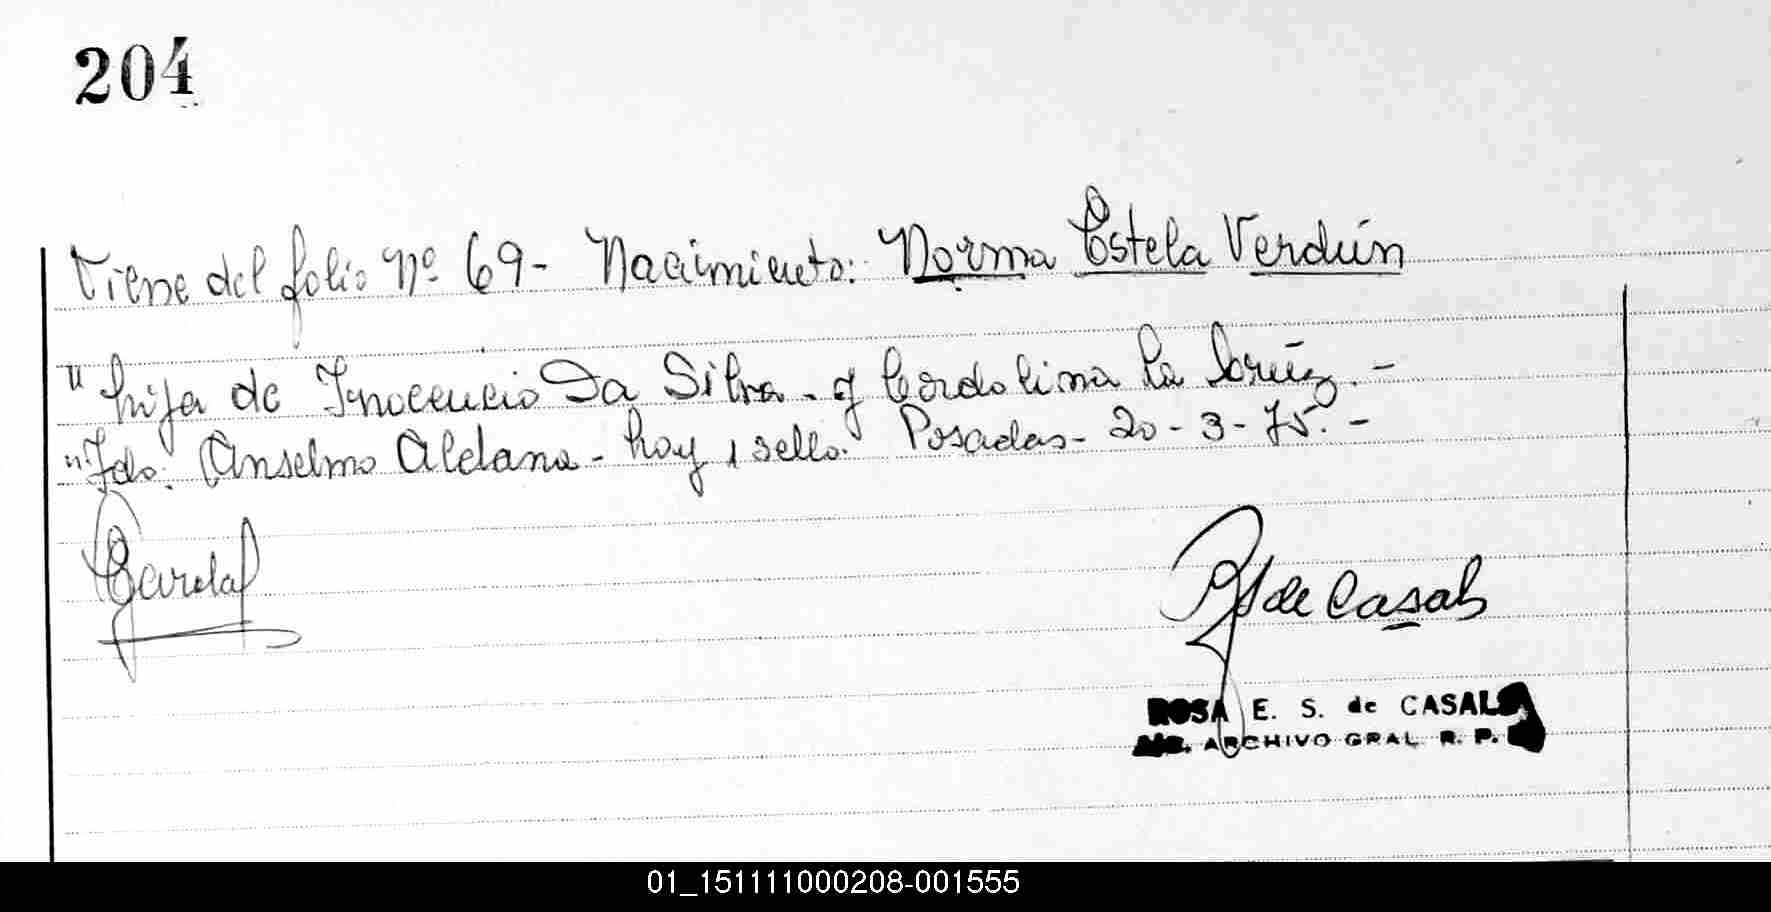 204
Viene del folio Nº 69- Nacimiento: Norma Estela Verdún
" hija de Inocencio Da Silva - y Cordolina La Crúz. -
" Fdo: Anselmo Aldana - hoy 1 sello. Posadas - 20 - 3 - 75. -
de Casals
ROSA E. S. de CASALS
ARCHIVO GRAL. R. P.
01_151111000208-001555